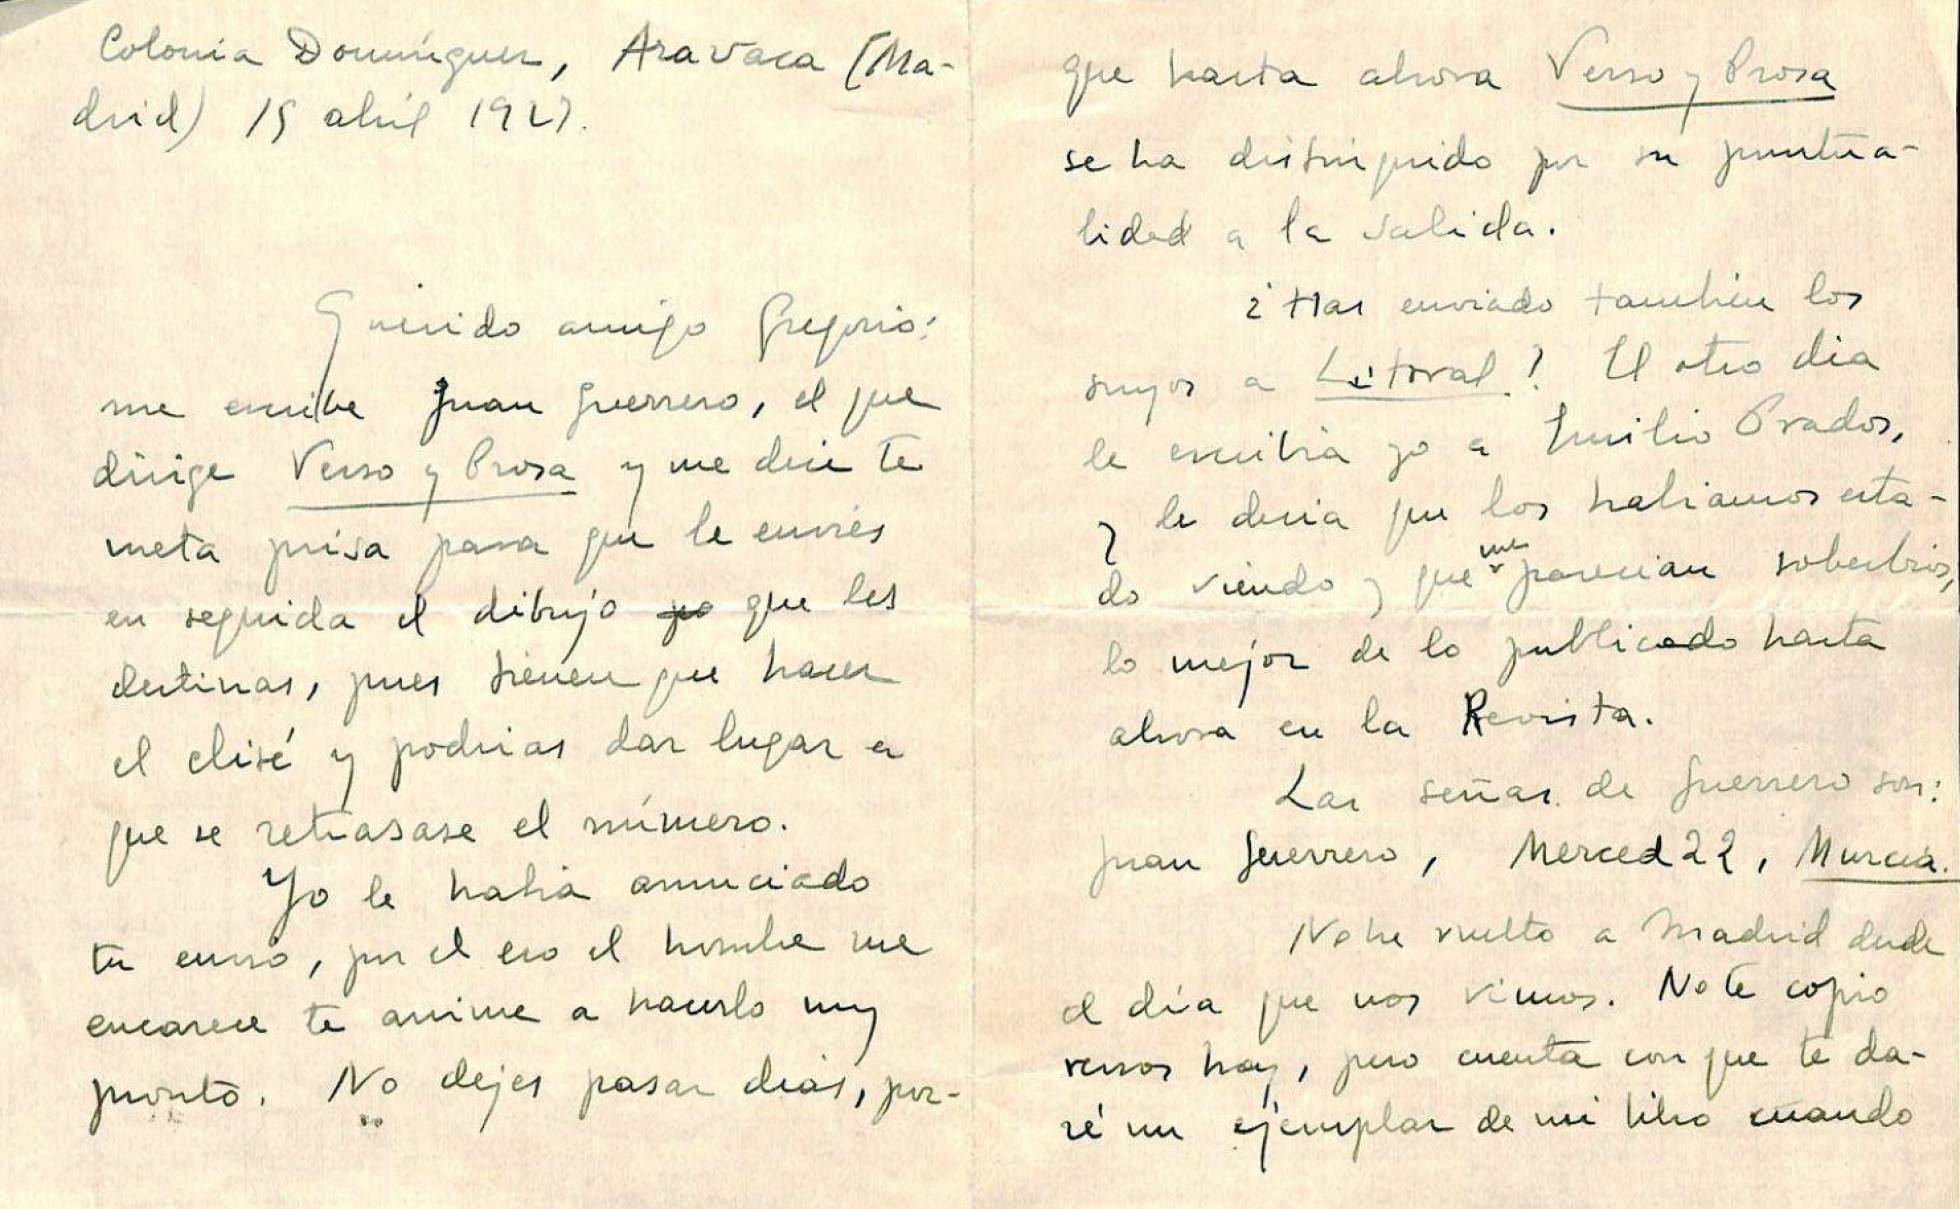 Colonia Domínguez, Aravaca (Ma-
drid) 15 abril 1927.
Querido amigo Gregorio:
me escribe Juan Guerrero, el que
dirige Verso y Prosa y me dice te
meta prisa para que le envíes
en seguida el dibujo que les
destinas, pues tienen que hacer
el clisé y podrias dar lugar a
que se retrasase el número.
Yo le había anunciado
tu envio, por el eso el hombre me
encarece te anime a hacerlo muy
pronto. No dejes pasar dias, por-
que hasta ahora Verso y Prosa
se ha distinguido por su puntua-
lidad a la salida.
¿Has enviado también los
suyos a Litoral? El otro dia
le escribia yo a Emilio Prados,
y le decia que los habiamos esta-
do viendo y que me parecian soberbios,
lo mejor de lo publicado hasta
ahora en la Revista.
Las señas de Guerrero son:
Juan Guerrero, Merced 22, Murcia.
No he vuelto a Madrid desde
el día que nos vimos. No te copio
versos hoy, pero cuenta con que te da-
ré un ejemplar de mi libro cuando